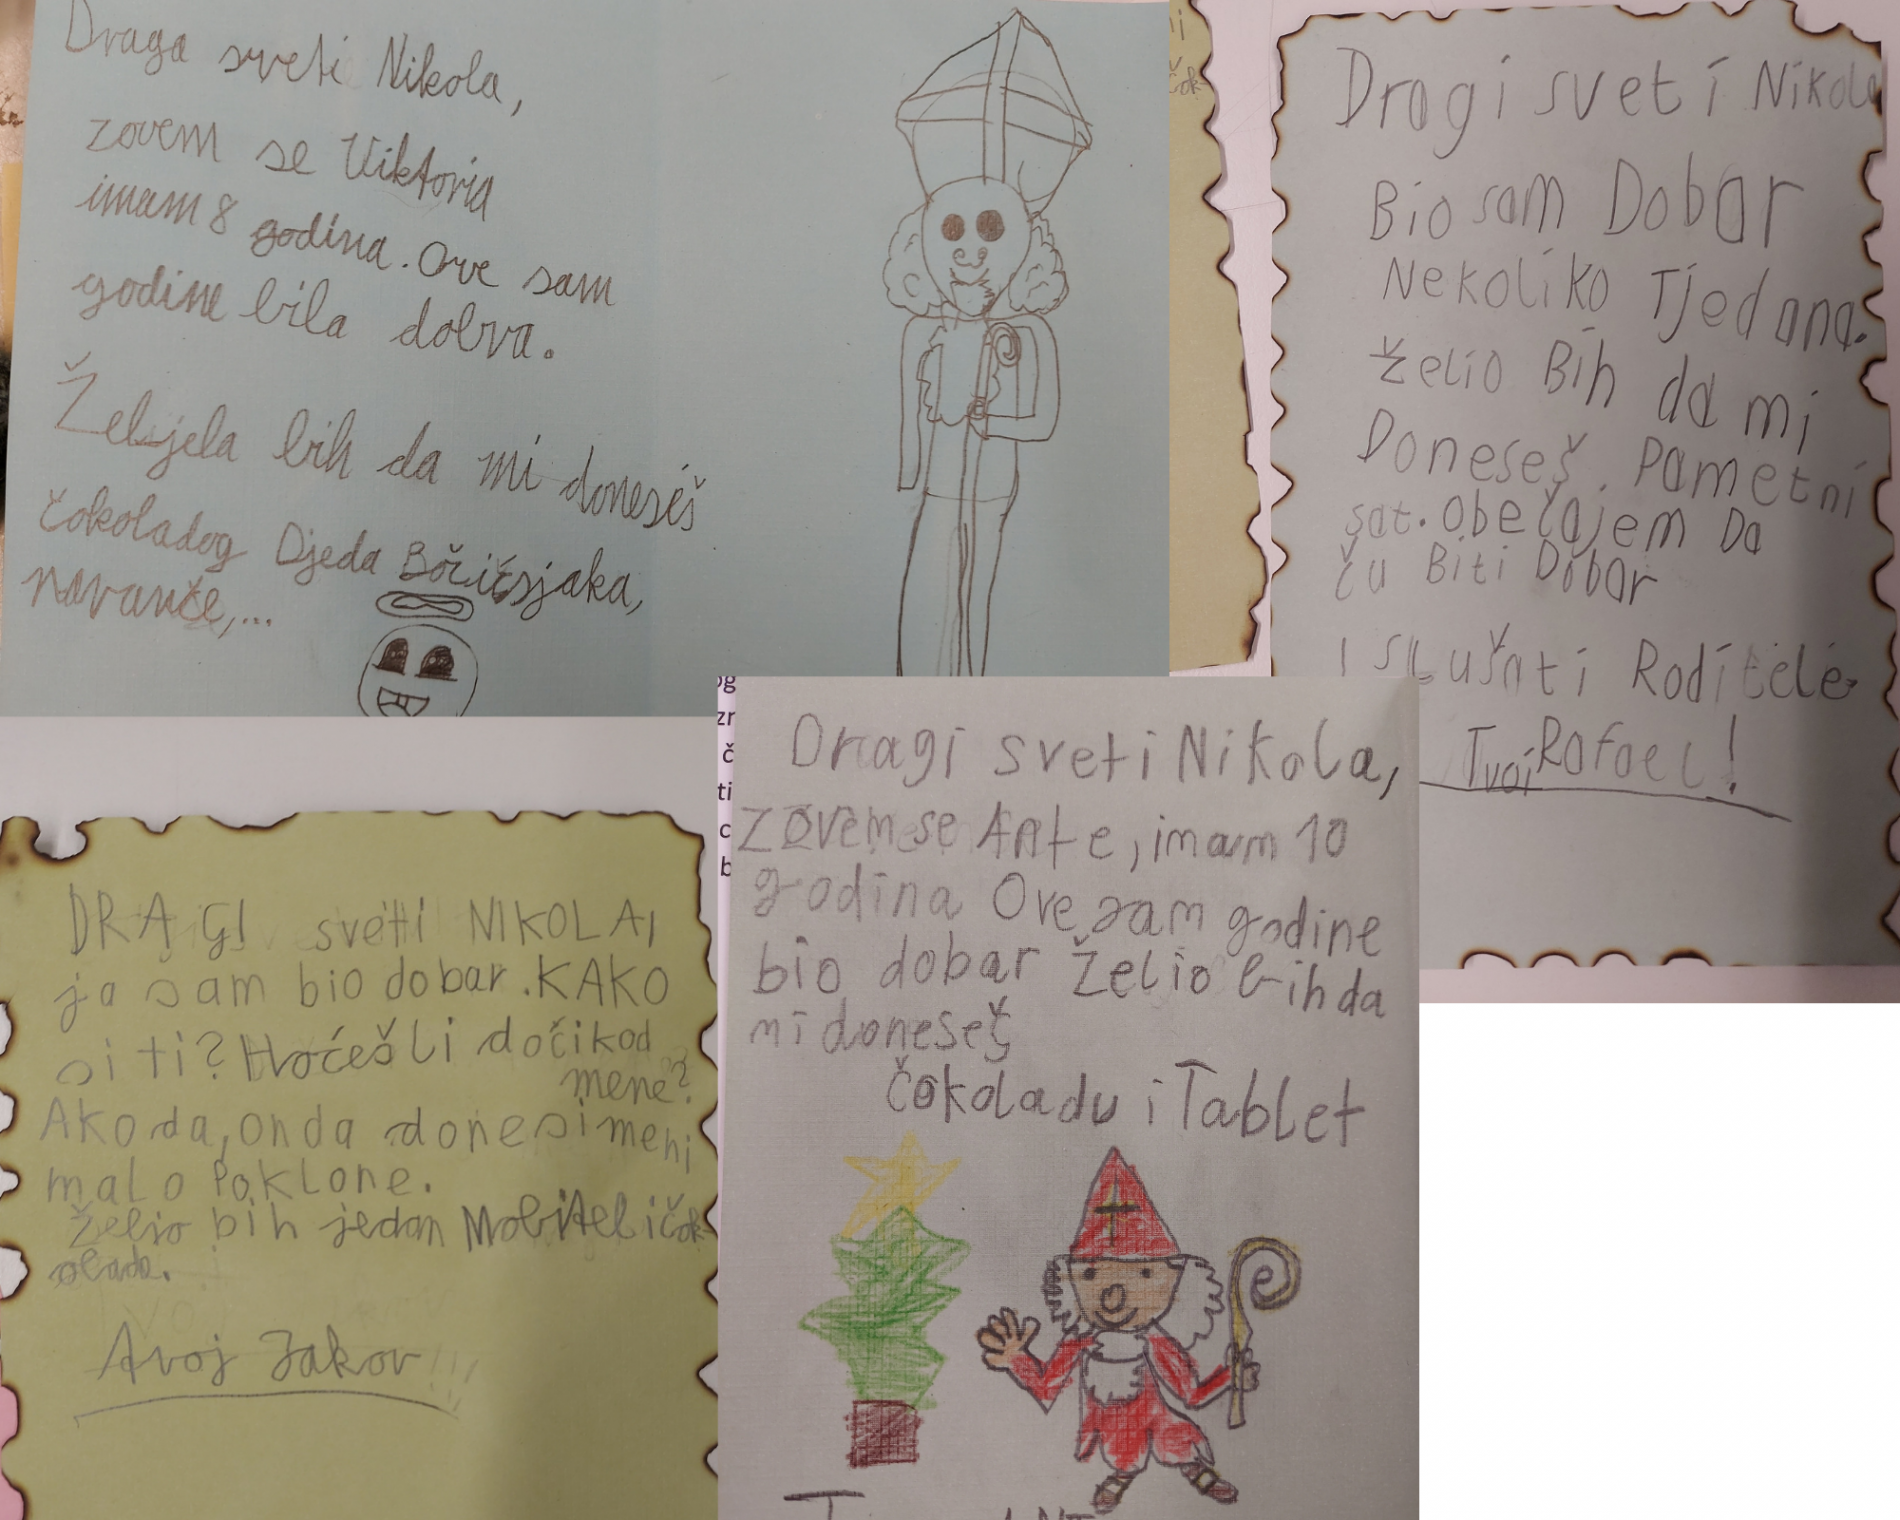 Draga sveti Nikola,
zovem se Viktoria
imam 8 godina. Ove sam
godine bila dobra.
Željela bih da mi doneseš
čokoladog Djeda
naranče,...
Dragi sveti Nikola
Bio sam Dobar
Nekoliko Tjedana.
Želio Bih da mi
Doneseš Pametni
sat. Obečajem Da
ču Biti Dobar
I SLušati Roditele
Tvoj Rafael!
DRAGI sveti NIKOLA,
ja sam bio dobar. KAKO
si ti? Hočeš li doči kod
mene?
Ako da, onda donesi meni
malo Poklone.
Želio bih jedan Mobitel i čok
olada.
Avoj Jakov
Dragi sveti Nikola,
Zovem se Ante, imam 10
godina Ove sam godine
bio dobar Želio bih da
mi doneseš
čokoladu i Tablet
og
zr
č
ti
c
b